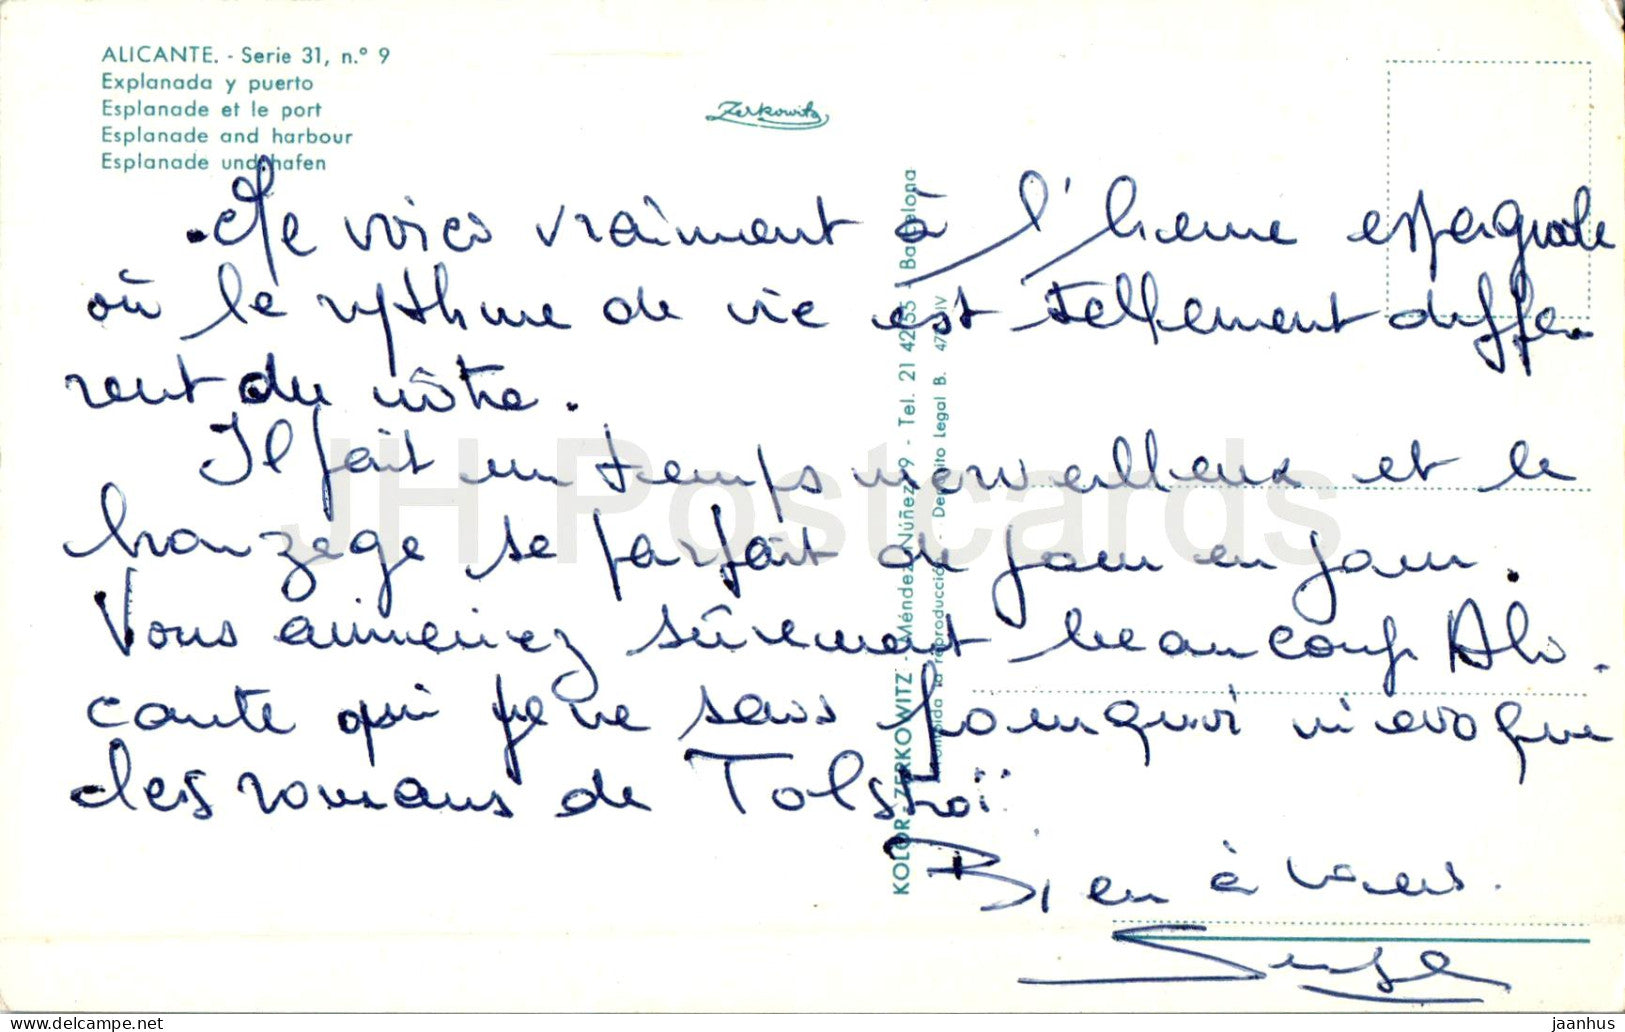 ALICANTE. - Serie 31, n.º 9
Explanada y puerto
Esplanade et le port
Esplanade and harbour
Esplanade und hafen
Zerkowitz
Je vois vraiment à l'heure espagnole
où le rythme de vie est tellement diffé-
rent du nôtre.
Il fait un temps merveilleux et le
bronzage se parfait de jour en jour.
Vous aimeriez sûrement beaucoup Ali-
cante qui je ne sais pourquoi m'évoque
des romans de Tolstoï
Bien à vous.
Serge
KOLOR - ZERKOWITZ - Méndez Núñez, 9 - Tel. 21 42 55 Barcelona
Prohibida la reproducción - Depósito Legal B. 47 IV
JH Postcards
delcampe.net
jaanhus